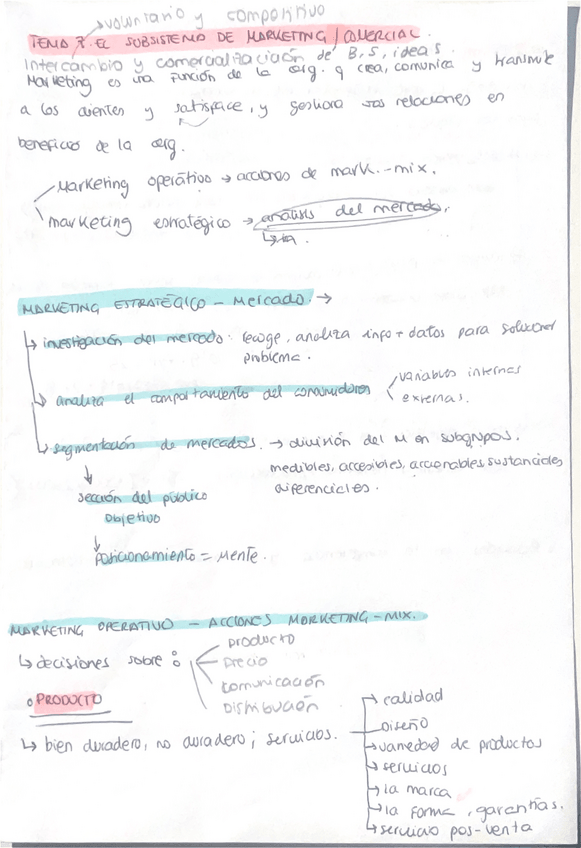 voluntario y competitivo
TEMA 7. EL SUBSISTEMA DE MARKETING/COMERCIAL.
Intercambio y comercialización de B, S, ideas.
Marketing es una función de la org. q crea, comunica y transmite
a los clientes y satisface, y gestiona sus relaciones en
beneficios de la org.
Marketing operativo → acciones de mark.-mix.
marketing estratégico → análisis del mercado.
MARKETING ESTRATÉGICO - Mercado. →
↳ investigación del mercado: recoge, analiza info + datos para solucionar
problema.
↳ analiza el comportamiento del consumidores
variables internas
externas.
↳ segmentación de mercados. → división del M en subgrupos.
medibles, accesibles, accionables, sustanciales
diferenciales.
sección del público
objetivo
posicionamiento = Mente.
MARKETING OPERATIVO - ACCIONES MARKETING-MIX.
↳ decisiones sobre:
producto
precio
comunicación
Distribución
PRODUCTO
↳ bien duradero, no duradero; servicios.
→ calidad
Diseño
→ variedad de productos
→ servicios
→ la marca
→ la forma, garantías.
→ servicio pos-venta